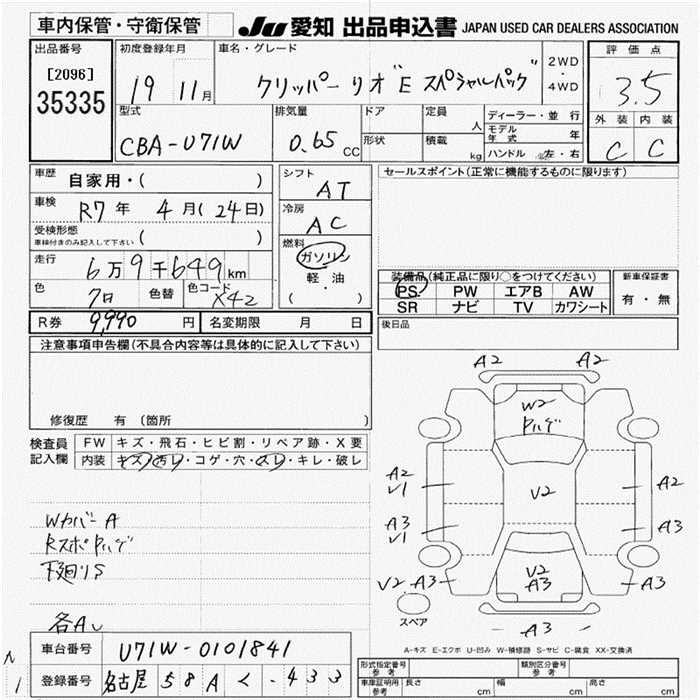 車内保管・守衛保管
JU 愛知 出品申込書 JAPAN USED CAR DEALERS ASSOCIATION
出品番号
[2096]
35335
初度登録年月
19 11月
車名・グレード
クリッパーリオ"E スペシャルパック"
2WD
・
4WD
評価点
3.5
外装 内装
C C
型式
CBA-U71W
排気量
0.65 CC
ドア
形状
定員
人
積載
kg
ディーラー・並行
モデル年式 年
ハンドル 左・右
車歴
自家用・( )
車検
R7年 4月(24日)
受検形態
車検付きのみ記入して下さい ( )
走行
6万9千649km
色
色替
色コード
X42
シフト
AT
冷房
AC
燃料
ガソリン
軽・油
( )
セールスポイント(正常に機能するものに限ります)
装備品(純正品に限り○をつけてください)
PS PW エアB AW
SR ナビ TV カワシート
新車保証書
有・無
後日品
R券 9,990 円
名変期限 月 日
注意事項申告欄(不具合内容等は具体的に記入して下さい)
修復歴 有 (箇所 )
検査員
記入欄
FW キズ・飛石・ヒビ割・リペア跡・X要
内装 キズ・汚レ・コゲ・穴・スレ・キレ・破レ
Wカバー A
RスポPハゲ
下廻りS
各A
A2 A2
W2
Pハゲ
A2
V1
V2
A2
A3
V1
A3
V2 A3
V2
A3
A3
A3
スペア
A-キズ E-エクボ U-凹み W-補修跡 S-サビ C-腐食 XX-交換済
車台番号
U71W-0101841
登録番号
名古屋 58A く-433
形式指定番号
参考
類別区分番号
参考
車庫証明用
参考
長さ cm
幅 cm
高さ cm